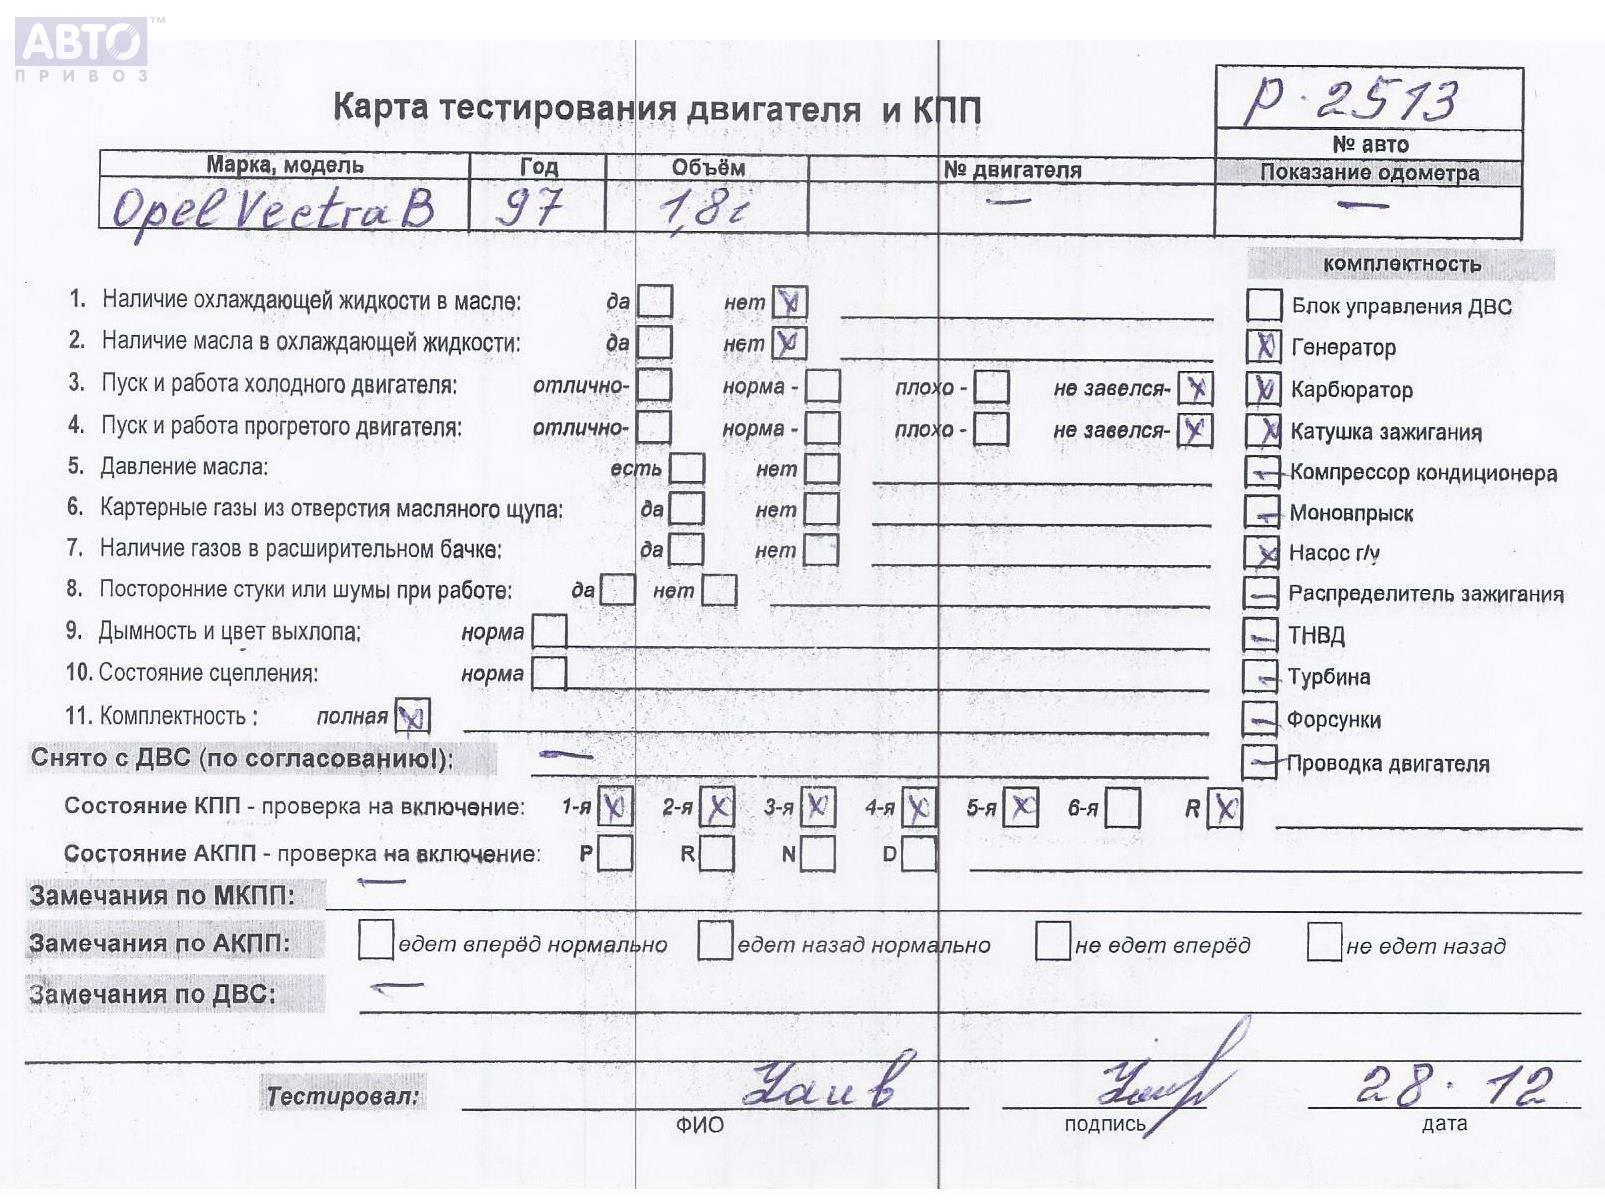 АВТО™
ПРИВОЗ
Р·2513
Карта тестирования двигателя и КПП
№ авто
Марка, модель Год Объём № двигателя Показание одометра
Opel Vectra B 97 1,8i — —
комплектность
1. Наличие охлаждающей жидкости в масле: да нет X Блок управления ДВС
2. Наличие масла в охлаждающей жидкости: да нет X X Генератор
3. Пуск и работа холодного двигателя: отлично- норма - плохо - не завелся- X X Карбюратор
4. Пуск и работа прогретого двигателя: отлично- норма - плохо - не завелся- X X Катушка зажигания
5. Давление масла: есть нет — Компрессор кондиционера
6. Картерные газы из отверстия масляного щупа: да нет — Моновпрыск
7. Наличие газов в расширительном бачке: да нет X Насос г/у
8. Посторонние стуки или шумы при работе: да нет — Распределитель зажигания
9. Дымность и цвет выхлопа: норма — ТНВД
10. Состояние сцепления: норма — Турбина
11. Комплектность : полная X — Форсунки
Снято с ДВС (по согласованию!): — — Проводка двигателя
Состояние КПП - проверка на включение: 1-я X 2-я X 3-я X 4-я X 5-я X 6-я R X
Состояние АКПП - проверка на включение: P R N D
Замечания по МКПП: —
Замечания по АКПП: едет вперёд нормально едет назад нормально не едет вперёд не едет назад
Замечания по ДВС: —
Тестировал: 28.12
ФИО подпись дата